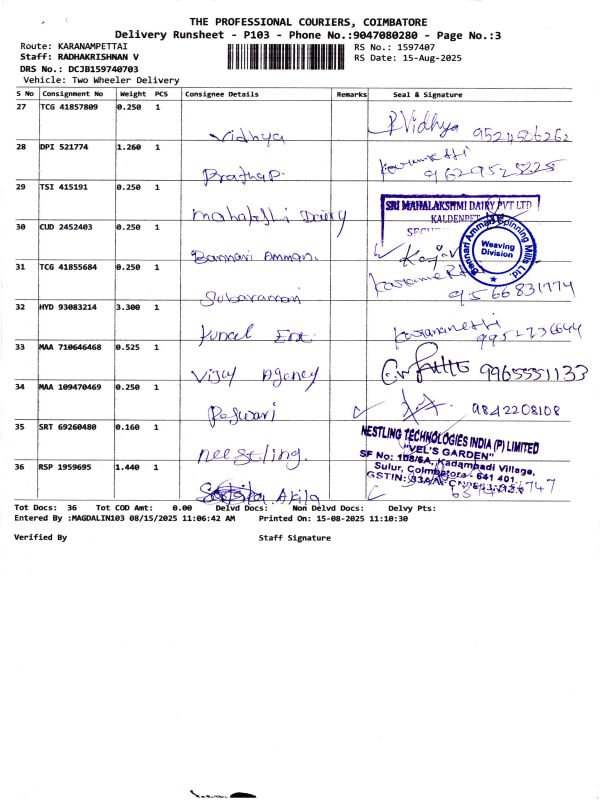 THE PROFESSIONAL COURIERS, COIMBATORE
Delivery Runsheet - P103 - Phone No.:9047080280 - Page No.:3
Route: KARANAMPETTAI RS No.: 1597407
Staff: RADHAKRISHNAN V RS Date: 15-Aug-2025
DRS No.: DCJB159740703
Vehicle: Two Wheeler Delivery
S No Consignment No Weight PCS Consignee Details Remarks Seal & Signature
27 TCG 41857809 0.250 1
Vidhya P.Vidhya
28 DPI 521774 1.260 1
Prathap.
29 TSI 415191 0.250 1
SRI MAHALAKSHMI DAIRY PVT LTD
Dairy KALDENPET
30 CUD 2452403 0.250 1
Bannari Amman. Bannari Amman Spinning Mills Ltd. Weaving Division
31 TCG 41855684 0.250 1
Subaraman 9566831774
32 HYD 93083214 3.300 1
Ent.
33 MAA 710646468 0.525 1
Vijay Agency 9965551133
34 MAA 109470469 0.250 1
9842208108
35 SRT 69260480 0.160 1
NESTLING TECHNOLOGIES INDIA (P) LIMITED
"VEL'S GARDEN"
neestling. SF No: 108/6A, Kadambadi Village,
36 RSP 1959695 1.440 1
Sulur, Coimbatore - 641 401.
Akila GSTIN:
Tot Docs: 36 Tot COD Amt: 0.00 Delvd Docs: Non Delvd Docs: Delvy Pts:
Entered By :MAGDALIN103 08/15/2025 11:06:42 AM Printed On: 15-08-2025 11:10:30
Verified By Staff Signature